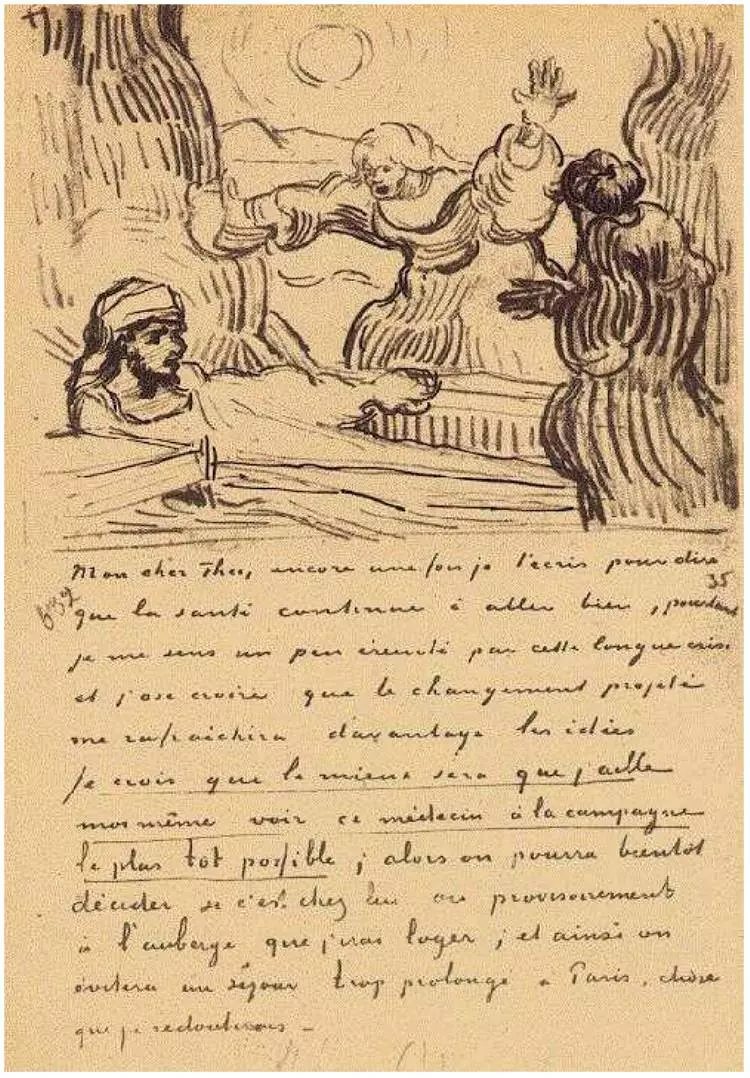 Mon cher Theo, encore une fois je t'écris pour dire
35
632
que la santé continue à aller bien, pourtant
je me sens un peu éreinté par cette longue crise
et j'ose croire que le changement projeté
me rafraichira davantage les idées
Je crois que le mieux sera que j'aille
moi même voir ce médecin à la campagne
le plus tôt possible ; alors on pourra bientôt
décider si c'est chez lui ou provisoirement
à l'auberge que j'irai loger ; et ainsi on
évitera un séjour trop prolongé à Paris, chose
que je redouterais –